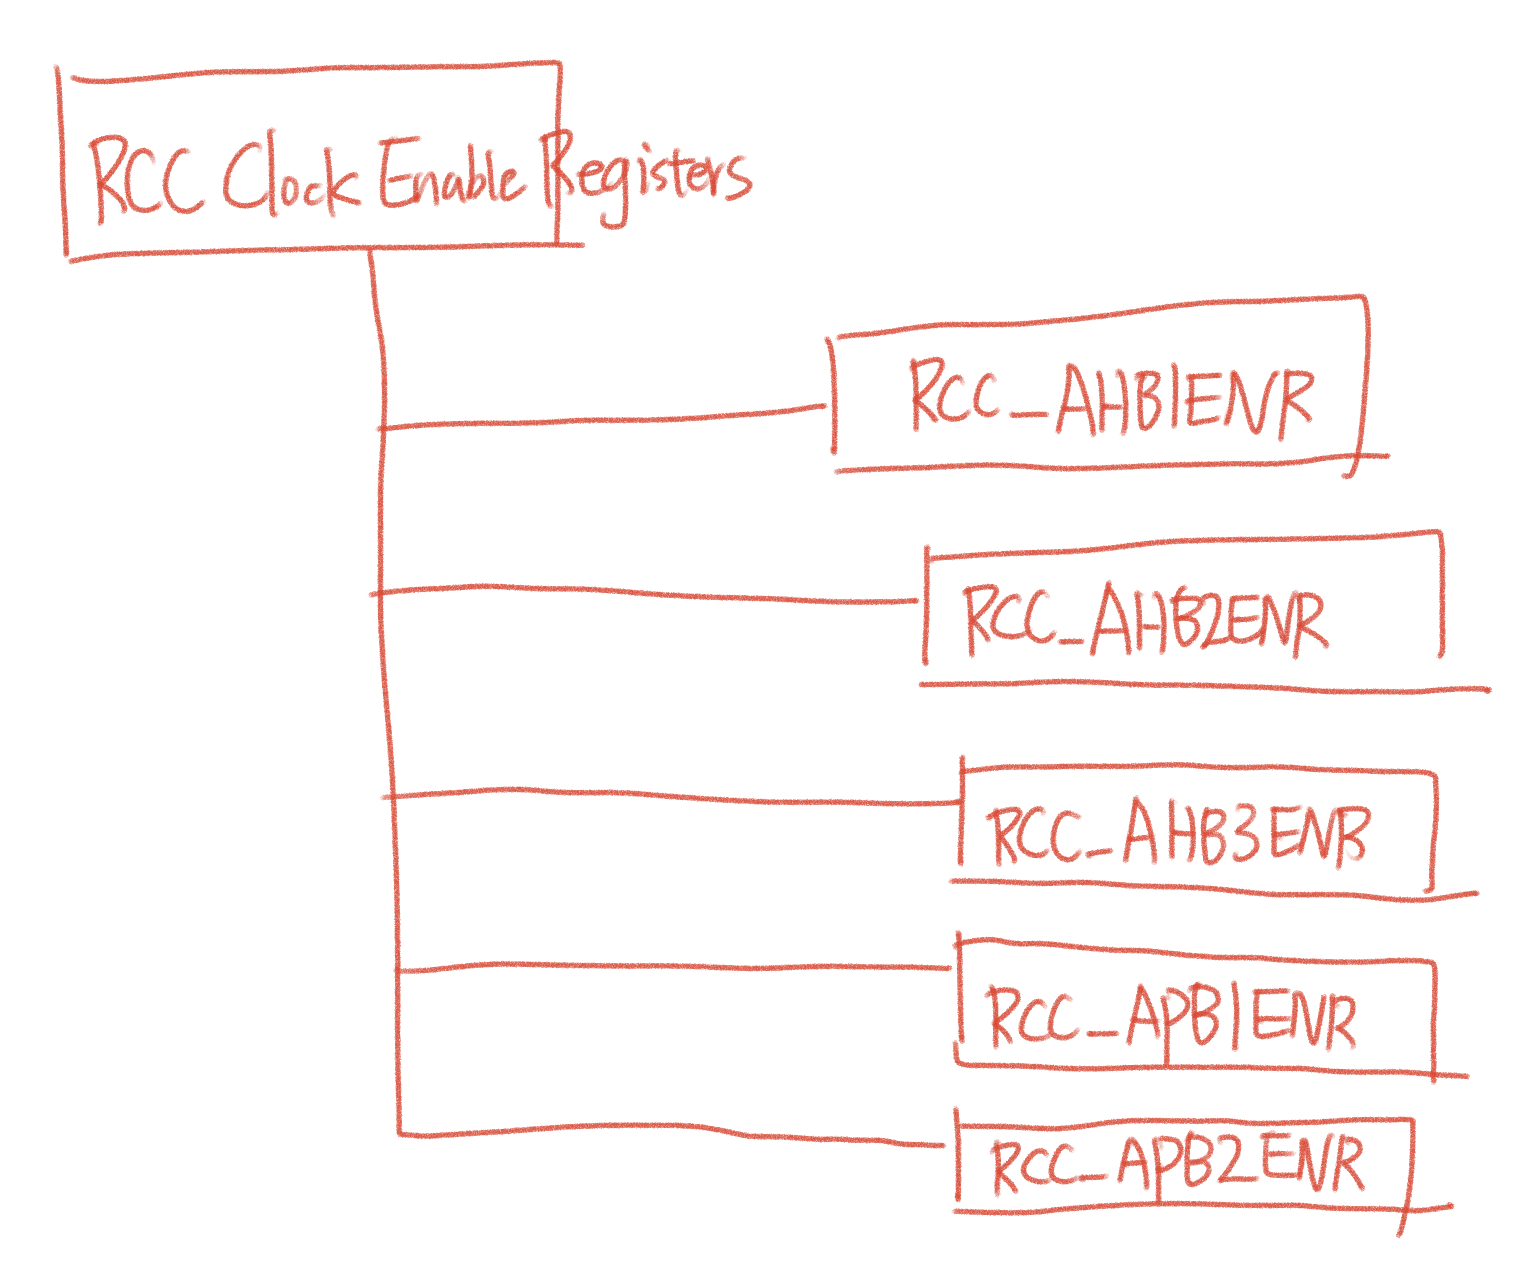 RCC Clock Enable Registers
RCC_AHB1ENR
RCC_AHB2ENR
RCC_AHB3ENR
RCC_APB1ENR
RCC_APB2ENR